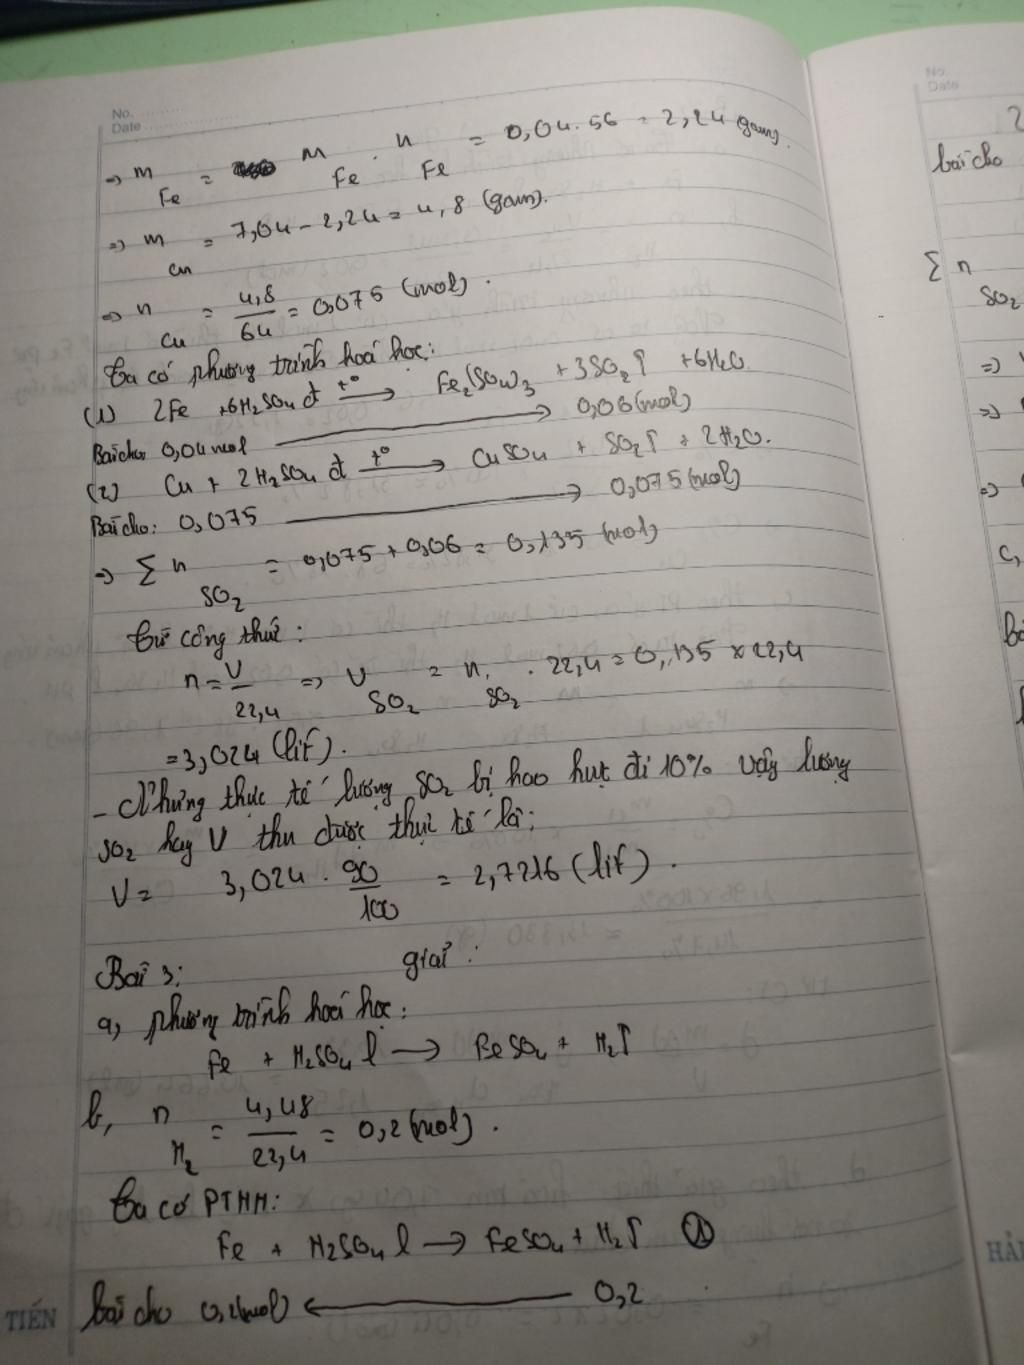 No. ............
Date ................
=> m Fe = M Fe . n Fe = 0,04.56 = 2,24 (gam).
=> m Cu = 7,04 - 2,24 = 4,8 (gam).
=> n Cu = 4,8/64 = 0,075 (mol).
Ta có phương trình hoá học:
(1) 2Fe + 6H2SO4 đ t°→ Fe2(SO4)3 + 3SO2↑ + 6H2O
Bài cho: 0,04 mol → 0,06 (mol)
(2) Cu + 2H2SO4 đ t°→ CuSO4 + SO2↑ + 2H2O.
Bài cho: 0,075 → 0,075 (mol)
=> Σ n SO2 = 0,075 + 0,06 = 0,135 (mol)
Từ công thức:
n = V/22,4 => V SO2 = n SO2 . 22,4 = 0,135 x 22,4
= 3,024 (lít).
- Nhưng thực tế lượng SO2 bị hao hụt đi 10% vậy lượng
SO2 hay V thu được thực tế là:
V = 3,024 . 90/100 = 2,7216 (lít).
Bài 3: giải:
a, phương trình hoá học:
Fe + H2SO4 l → FeSO4 + H2↑
b, n H2 = 4,48/22,4 = 0,2 (mol).
Ta có PTHH:
Fe + H2SO4 l → FeSO4 + H2↑ (1)
bài cho 0,2(mol) ← 0,2
TIẾN
No.
Date
2
bài cho
Σ n
SO2
=>
=>
=>
c,
HẢI